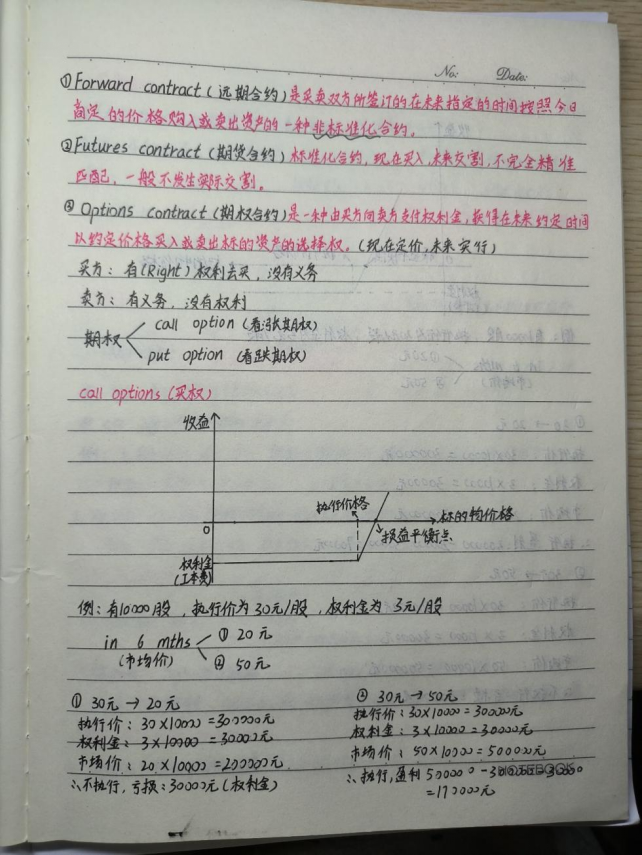 No: Date:
①Forward contract(远期合约)是买卖双方所签订的在未来指定的时间按照今日
商定的价格购入或卖出资产的一种非标准化合约。
②Futures contract(期货合约)标准化合约,现在买入,未来交割,不完全精准
匹配,一般不发生实际交割。
③Options contract(期权合约)是一种由买方向卖方支付权利金,获得在未来约定时间
以约定价格买入或卖出标的资产的选择权。(现在定价,未来实行)
买方:有(Right)权利去买,没有义务
卖方:有义务,没有权利
期权
call option(看涨期权)
put option(看跌期权)
call options(买权)
收益
执行价格
O
标的物价格
损益平衡点
权利金
(工本费)
例:有10000股,执行价为30元/股,权利金为3元/股
in 6 mths
(市场价)
① 20元
② 50元
① 30元→20元
执行价:30×10000=300000元
权利金:3×10000=30000元
市场价:20×10000=200000元
∴不执行,亏损:30000元(权利金)
② 30元→50元
执行价:30×10000=300000元
权利金:3×10000=30000元
市场价:50×10000=500000元
∴执行,盈利500000-300000-30000
=170000元
NOTEBOOK